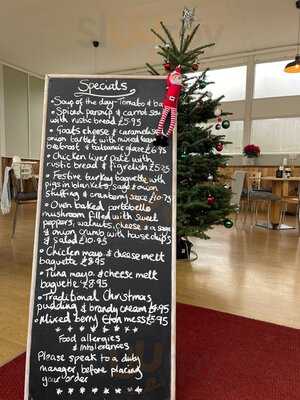 Specials
• Soup of the day - Tomato & ba
• Spiced parsnip & carrot soup
with rustic bread £5.95
• Goats cheese & caramelised
onion tartlet with mixed leaf,
beetroot & balsamic glaze £6.95
• Chicken liver pate with
rustic bread & fig relish £5.25
• Festive turkey baguette with
pigs in blankets, sage & onion
stuffing & cranberry sauce £10.75
• Oven baked portabello
mushroom filled with sweet
peppers, walnuts, cheese & a sage
& onion crumb with house chips
& salad £10.95
• Chicken mayo & cheese melt
baguette £8.95
• Tuna mayo & cheese melt
baguette £8.95
• Traditional Christmas
pudding & brandy cream £5.95
• Mixed berry Eton mess £5.95
Food allergies
& intolerances
Please speak to a duty
manager before placing
your order